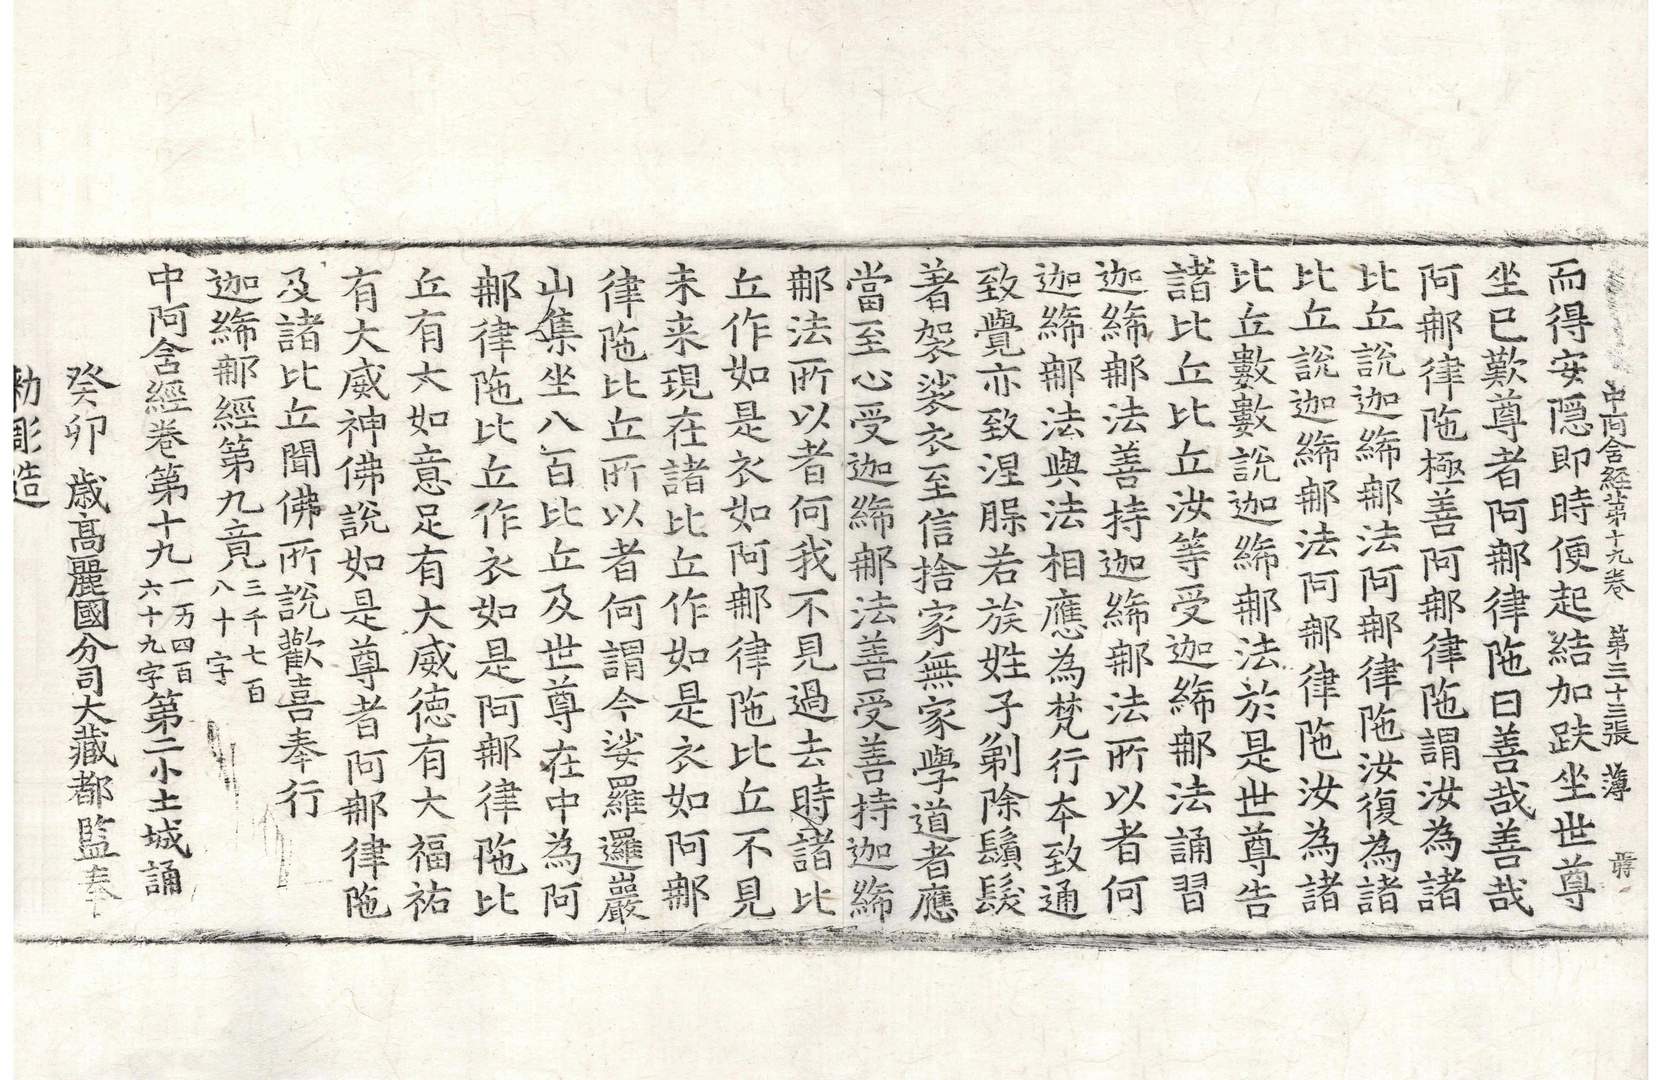 中阿含經第十九卷 第三十三張 薄
而得安隱即時便起結加趺坐世尊
坐已歎尊者阿那律陁曰善哉善哉
阿那律陁極善阿那律陁謂汝為諸
比丘說迦絺那法阿那律陁汝復為諸
比丘說迦絺那法阿那律陁汝為諸
比丘數數說迦絺那法於是世尊告
諸比丘比丘汝等受迦絺那法誦習
迦絺那法善持迦絺那法所以者何
迦絺那法與法相應為梵行本致通
致覺亦致涅槃若族姓子剃除鬚髮
著袈裟衣至信捨家無家學道者應
當至心受迦絺那法善受善持迦絺
那法所以者何我不見過去時諸比
丘作如是衣如阿那律陁比丘不見
未来現在諸比丘作如是衣如阿那
律陁比丘所以者何謂今娑羅邏巖
山集坐八百比丘及世尊在中為阿
那律陁比丘作衣如是阿那律陁比
丘有大如意足有大威德有大福祐
有大威神佛說如是尊者阿那律陁
及諸比丘聞佛所說歡喜奉行
迦絺那經第九竟三千七百八十字
中阿含經卷第十九一万四百六十九字第二小土城誦
癸卯歳高麗國分司大藏都監奉
勑彫造